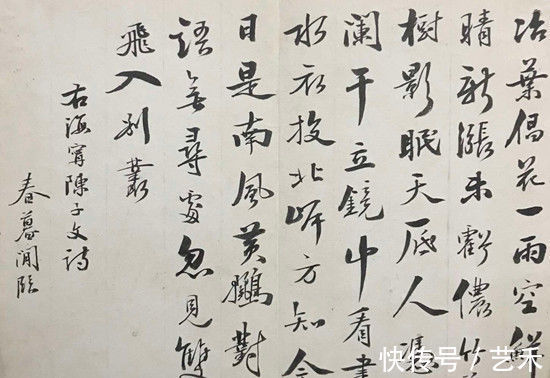 冶葉倡花一雨空鮮
晴新漲未虧儂
樹影眠天底人憑
闌干立鏡中看
水衣投北岸方知今
日是南風黃鸝對
語無尋處忽見雙
飛入別叢
右海寧陳子文詩
春暮閒臨
快传号 / 艺禾